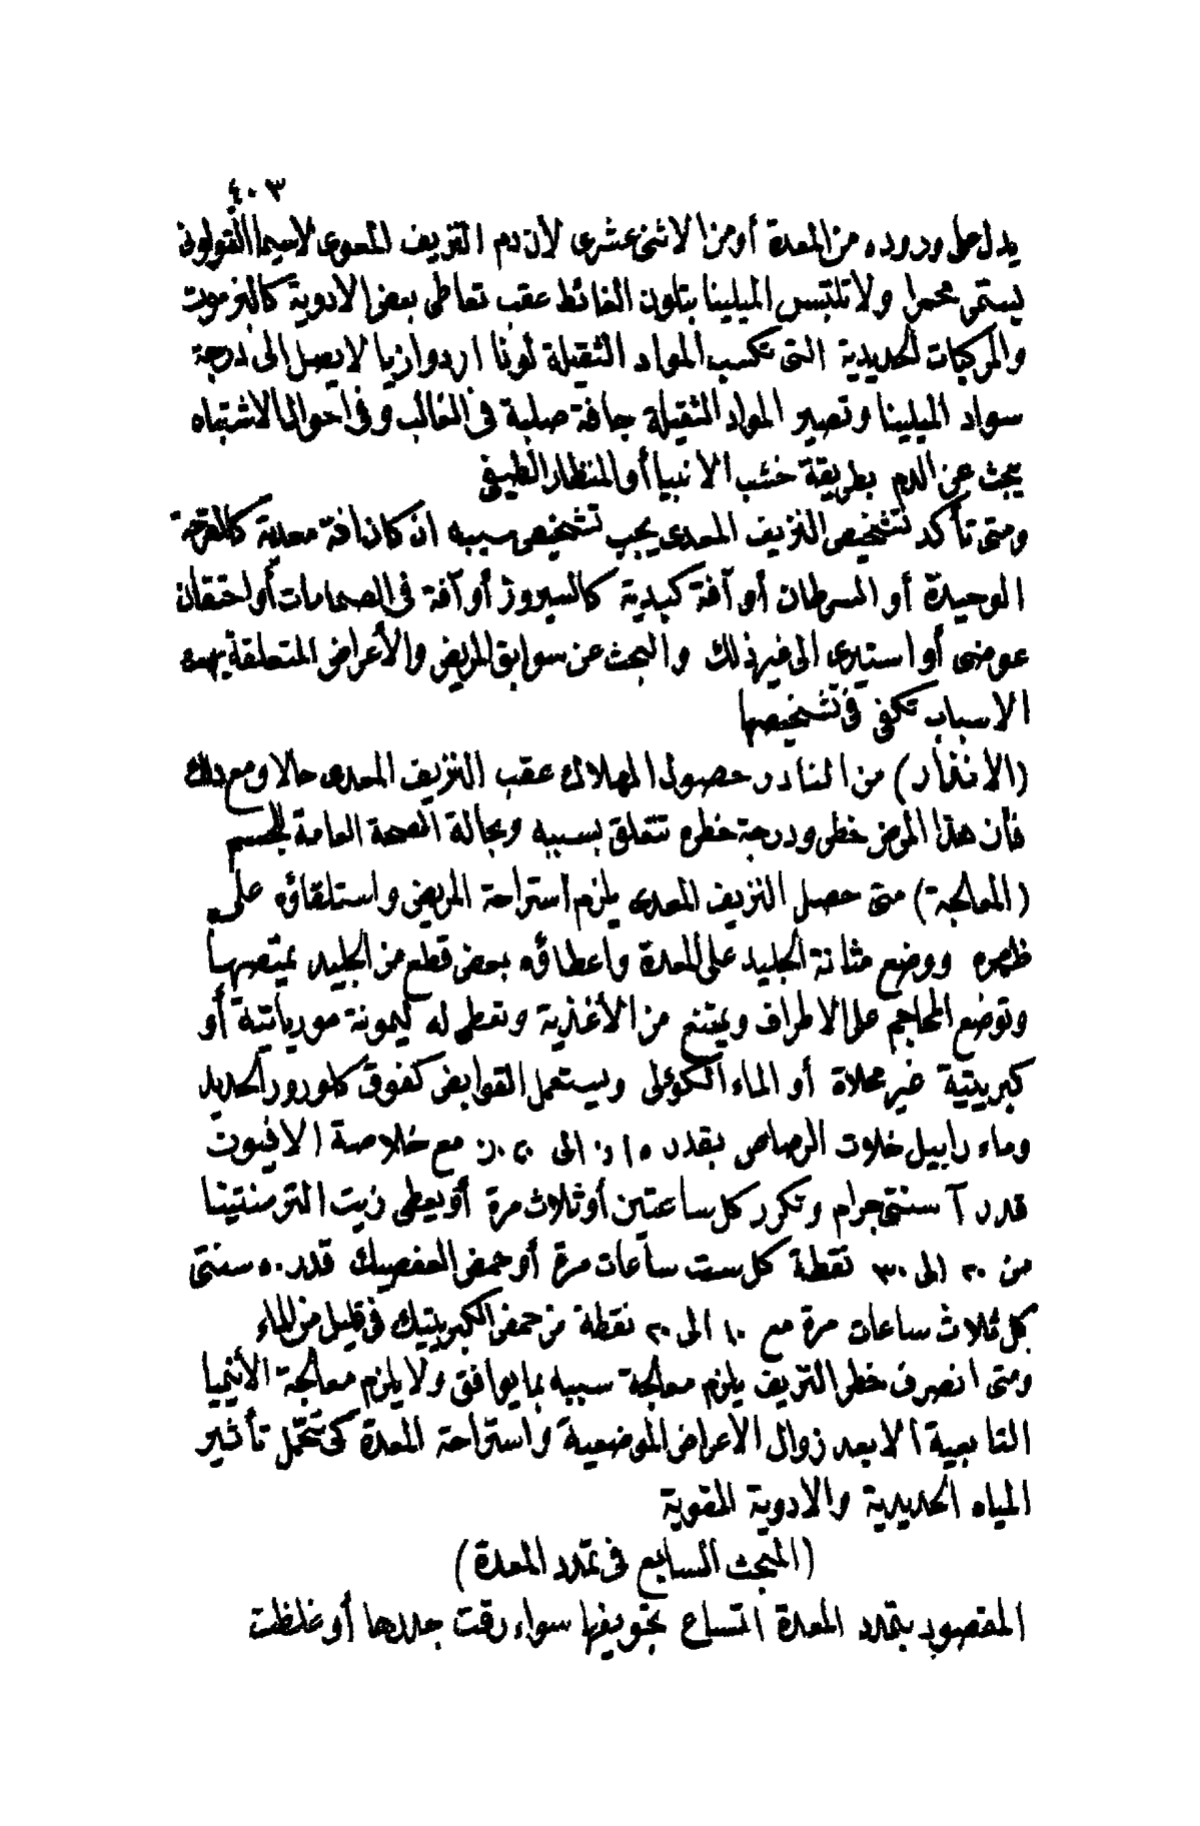 ٤٠٣
يدل على وروده من المعدة أومن الاثنى عشرى لأن دم النزيف المعوى لاسيما القولونى
يستمر محمرا ولا تلتبس الميلينا بتلون الغائط عقب تعاطى بعض الادوية كالبزموت
والمركبات الحديدية التى تكسب المواد الثقيلة لونا اردوازيا لا يصل الى درجة
سواد الميلينا وتصير المواد الثقيلة جافة صلبة فى الغالب وفى أحوال الاشتباه
يبحث عن الدم بطريقة خشب الانبيا أو المنظار الطيفى
ومتى تأكد تشخيص النزيف المعدى يجب تشخيص سببه ان كان افة معدية كالقرحة
الوحيدة أو السرطان أو آفة كبدية كالسيروز أو آفة فى الصمامات أو احتقان
عوضى أو استيرى الى غير ذلك والبحث عن سوابق المريض والأعراض المتعلقة بهذه
الاسباب تكفى فى تشخيصها
(الانذار) من النادر حصول الهلاك عقب النزيف المعدى حالا ومع ذلك
فأن هذا المرض خطر ودرجة خطره تتعلق بسببه وبحالة الصحة العامة للجسم
(المعالجة) متى حصل النزيف المعدى يلزم استراحة المريض واستلقاؤه على
ظهره ووضع مثانة الجليد على المعدة واعطاؤه بعض قطع من الجليد يمتصها
وتوضع المحاجم على الاطراف ويمتنع من الأغذية وتعطى له ليمونة موريأتية أو
كبريتية غير محلاة أو الماء الكؤلى ويستعمل القوابض كفوق كلورور الحديد
وماء رابيل خلات الرصاص بقدر الى مع خلاصة الافيون
قدر ٢ سنتى جرام وتكرر كل ساعتين أو ثلاث مرة أو يعطى زيت الترمنتينا
من ٢٠ الى ٣٠ نقطة كل ست ساعات مرة أو حمض العفصيك قدر ٥٠ سنتى
كل ثلاث ساعات مرة مع ١٠ الى ٢٠ نقطة من حمض الكبريتيك فى قليل من الماء
ومتى انصرف خطر النزيف يلزم معالجة سببه بما يوافق ولا يلزم معالجة الأنيميا
التابعية الا بعد زوال الاعراض الموضعية واستراحة المعدة كى تتحمل تأثير
المياه الحديدية والادوية المقوية
(المبحث السابع فى تمدد المعدة)
المقصود بتمدد المعدة اتساع تجويفها سواء رقت جدرها أو غلظت